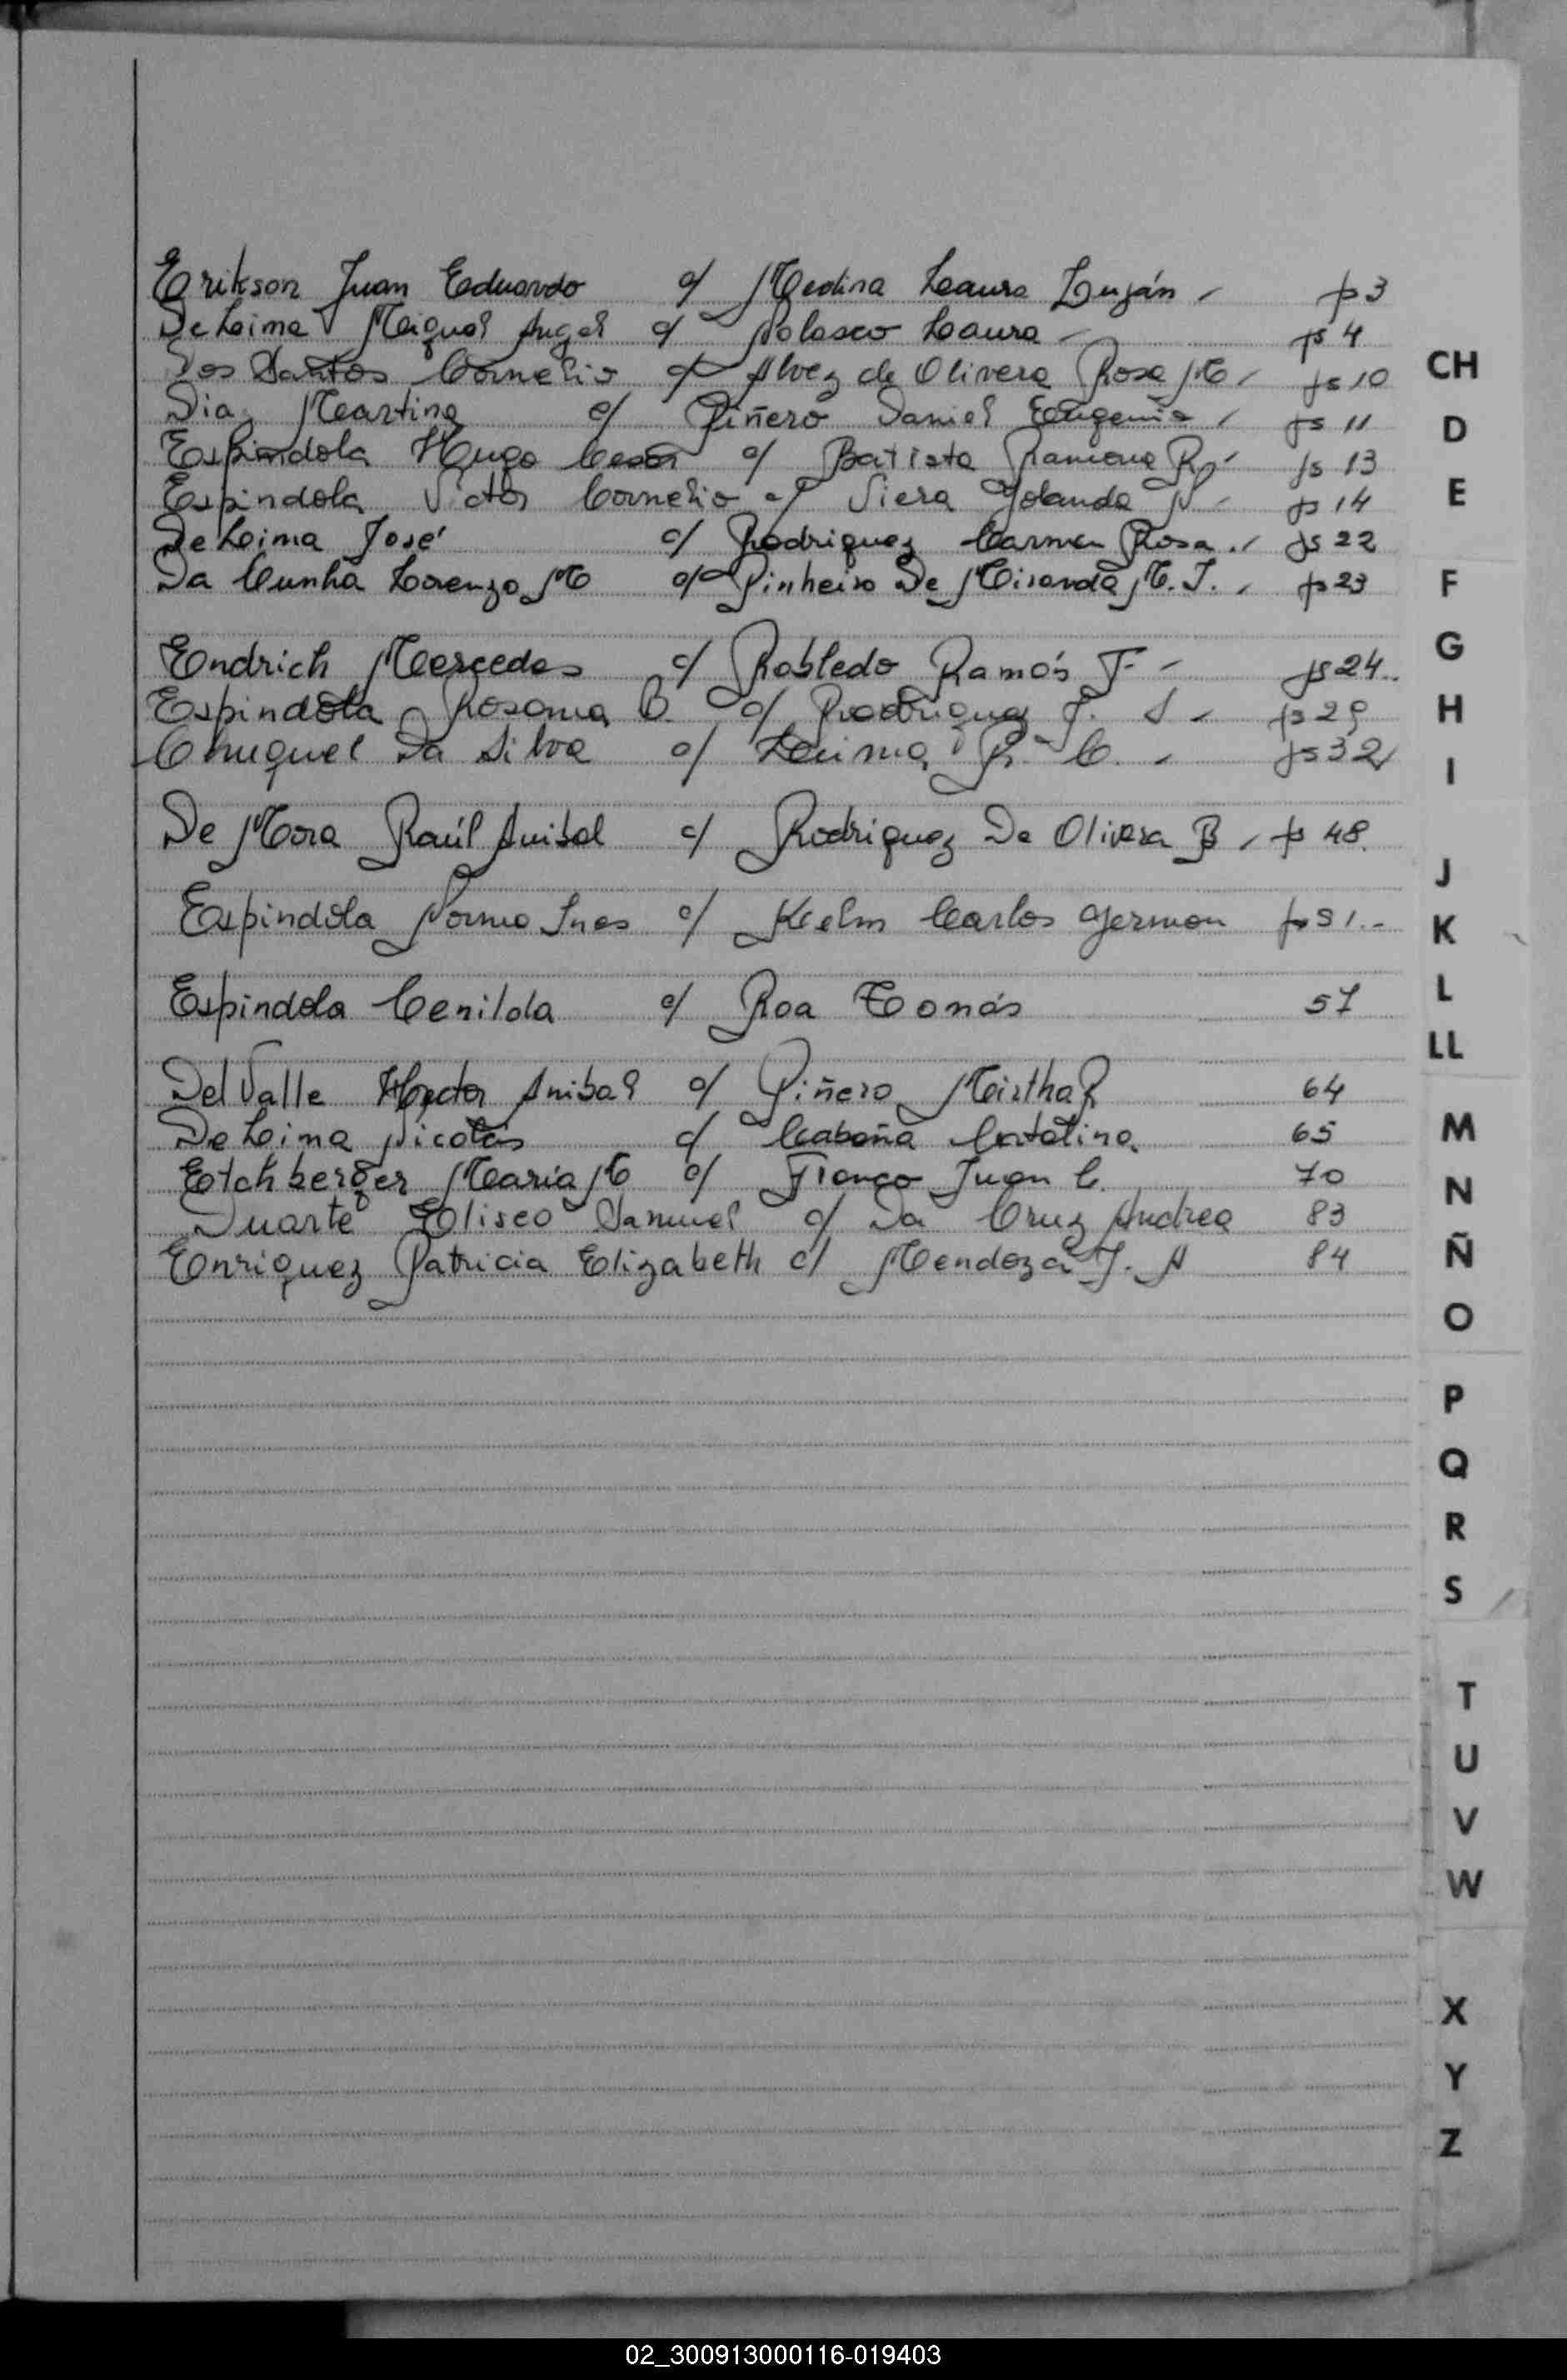 Erikson Juan Eduardo c/ Medina Laura Luján - fs 3
De Lima Miguel Angel c/ Nolasco Laura - fs 4
Dos Santos Cornelio c/ Alvez de Olivera Rosa M - fs 10
Diaz Martina c/ Piñero Daniel Eugenio - fs 11
Espindola Hugo Cesar c/ Batista Ramona R - fs 13
Espindola Victor Cornelio c/ Siera Yolanda N - fs 14
De Lima José c/ Rodriguez Carmen Rosa - fs 22
Da Cunha Lorenzo M c/ Pinheiro De Miranda M. T. - fs 23
Endrich Mercedes c/ Robledo Ramós F - fs 24
Espindola Rosana B. c/ Rodriguez J. S - fs 29
Chuquel Da Silva c/ R. C. - fs 32
De Mora Raúl Anibal c/ Rodriguez De Olivera B - fs 48
Espindola Norma Ines c/ Kelm Carlos German fs 51.-
Espindola Cenilda c/ Roa Tomás 57
Del Valle Hector Anibal c/ Piñero Mirtha R 64
De Lima Nicolás c/ Cabaña Catalina 65
Etchberger María M c/ Franco Juan C. 70
Duarte Eliseo Samuel c/ Da Cruz Andrea 83
Enriquez Patricia Elizabeth c/ Mendoza J. A 84
CH
D
E
F
G
H
I
J
K
L
LL
M
N
Ñ
O
P
Q
R
S
T
U
V
W
X
Y
Z
02_300913000116-019403